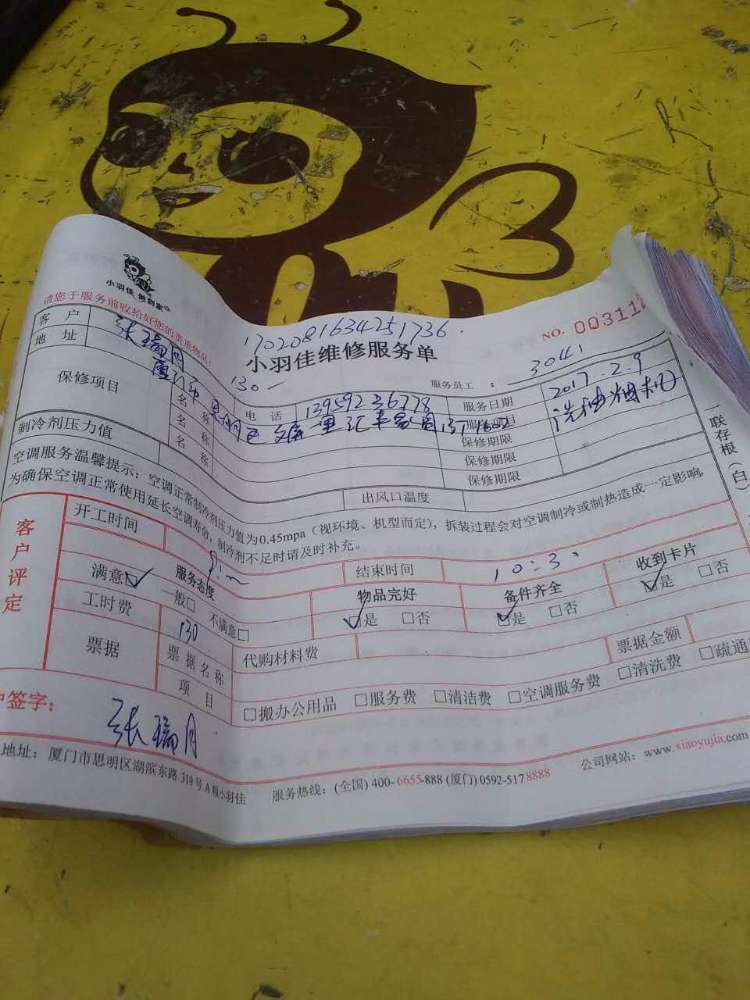 小羽佳
请您于服务前收给好您的贵重物品!
170208163425 1736.
NO. 00311
130-
小羽佳维修服务单
服务员工: 3041
客户 张瑞月 电话 13959236778 服务日期 2017.2.9
地址 厦门市
洗抽油烟机
保修项目 名称 保修期限
名称 保修期限
名称 保修期限
制冷剂压力值 出风口温度
空调服务温馨提示:空调正常制冷剂压力值为0.45mpa(视环境、机型而定),拆装过程会对空调制冷或制热造成一定影响
为确保空调正常使用延长空调寿命,制冷剂不足时请及时补充。
一联存根(白)
客户评定
开工时间 9:~ 结束时间 10:30
服务态度 物品完好 备件齐全 收到卡片
满意☑ 一般□ 不满意□ ☑是 □否 ☑是 □否 ☑是 □否
工时费 130 代购材料费 票据金额
票据 票据名称
项目 □搬办公用品 □服务费 □清洁费 □空调服务费 □清洗费 □疏通
户签字: 张瑞月
地址:厦门市思明区湖滨东路319号A 小羽佳 服务热线:(全国)400-6655-888 (厦门)0592-5178888 公司网站:www.xiaoyujia.com